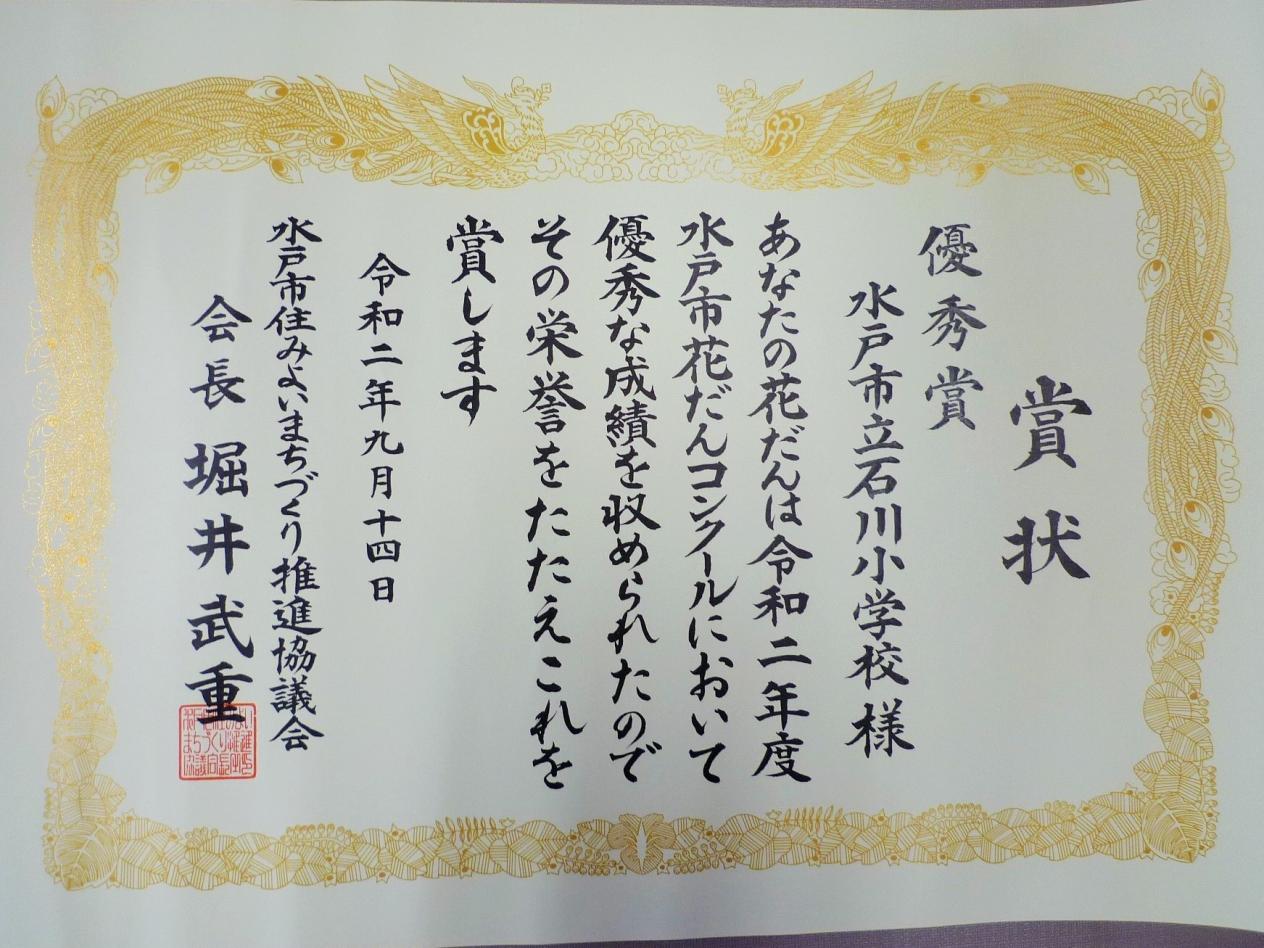 賞状
優秀賞
水戸市立石川小学校様
あなたの花だんは令和二年度
水戸市花だんコンクールにおいて
優秀な成績を収められたので
その栄誉をたたえこれを
賞します
令和二年九月十四日
水戸市住みよいまちづくり推進協議会
会長 堀井武重